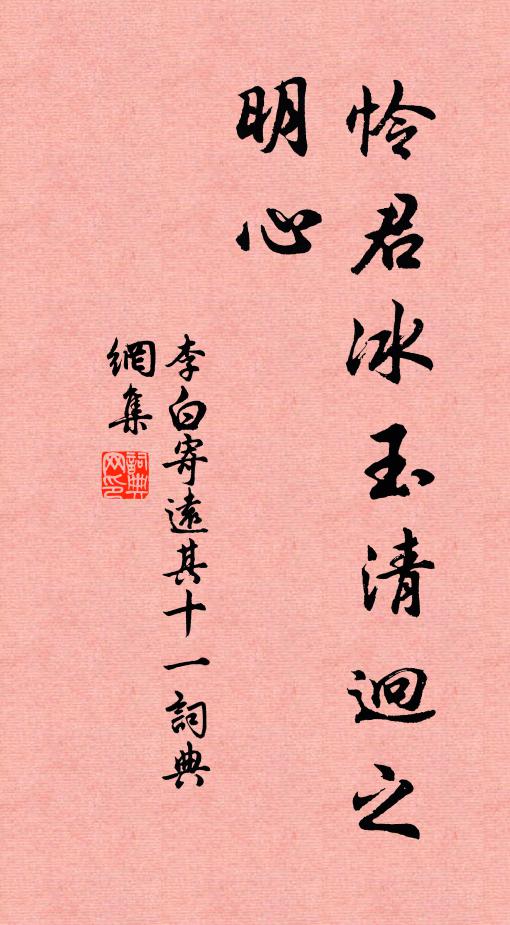 怜君冰玉清迥之
明心
李白寄遠其十一詞典
網集
詞典网印